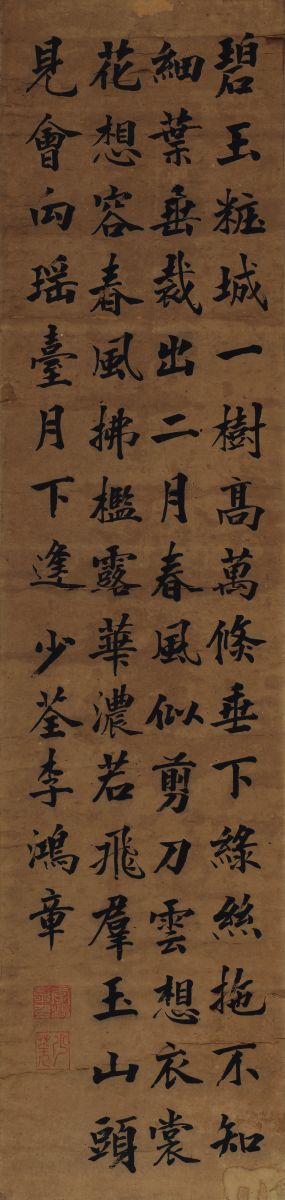 碧王粧城一樹髙萬條垂下綠絲拖不知
細葉垂裁出二月春風似剪刀雲想衣裳
花想容春風拂檻露華濃若飛羣玉山頭
見會向瑶臺月下逢少荃李鴻章